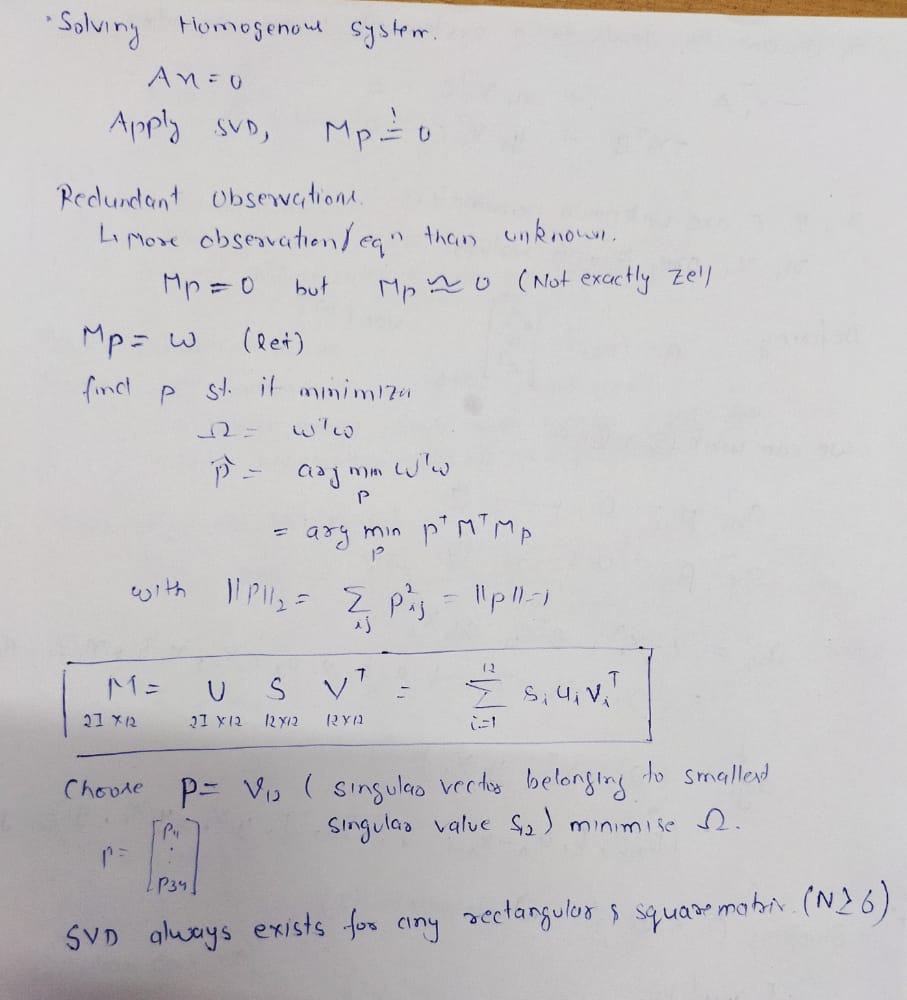 · Solving Homogenous system.
Ax = 0
Apply SVD, Mp =! 0
Redundant Observations.
↳ More observation/eqⁿ than unknown.
Mp = 0 but Mp ≈ 0 (Not exactly
Mp = w (let)
find p st. it minimizes
Ω = wᵀw
p̂ = arg min wᵀw
p
= arg min pᵀMᵀMp
p
with ||P||₂ = Σ p²ij = ||p|| = 1
ij
M = U S Vᵀ = Σ sᵢ uᵢ vᵢᵀ
12
2I × 12 2I × 12 12×12 12×12 i=1
Choose p = V₁₂ ( singular vector belonging to smallest
singular value S₁₂ ) minimise Ω.
p = [P₁₁ ⋮ P₃₄]
SVD always exists for any rectangular & square matrix. (N ≥ 6)